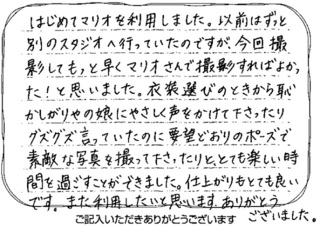 はじめてマリオを利用しました。以前はずっと
別のスタジオへ行っていたのですが、今回撮
影してもっと早くマリオさんで撮影すればよかっ
た!と思いました。衣装選びのときから恥
かしがりやの娘にやさしく声をかけて下さったり
グズグズ言っていたのに要望どおりのポーズで
素敵な写真を撮って下さったりと、とても楽しい時
間を過ごすことができました。仕上がりもとても良い
です。また利用したいと思います。ありがとう
ございました。
ご記入いただきありがとうございます